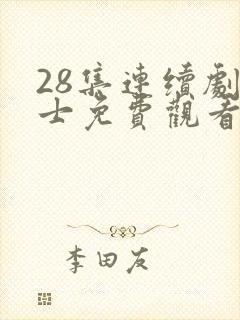 28集連續劇
士免費觀看
李田友